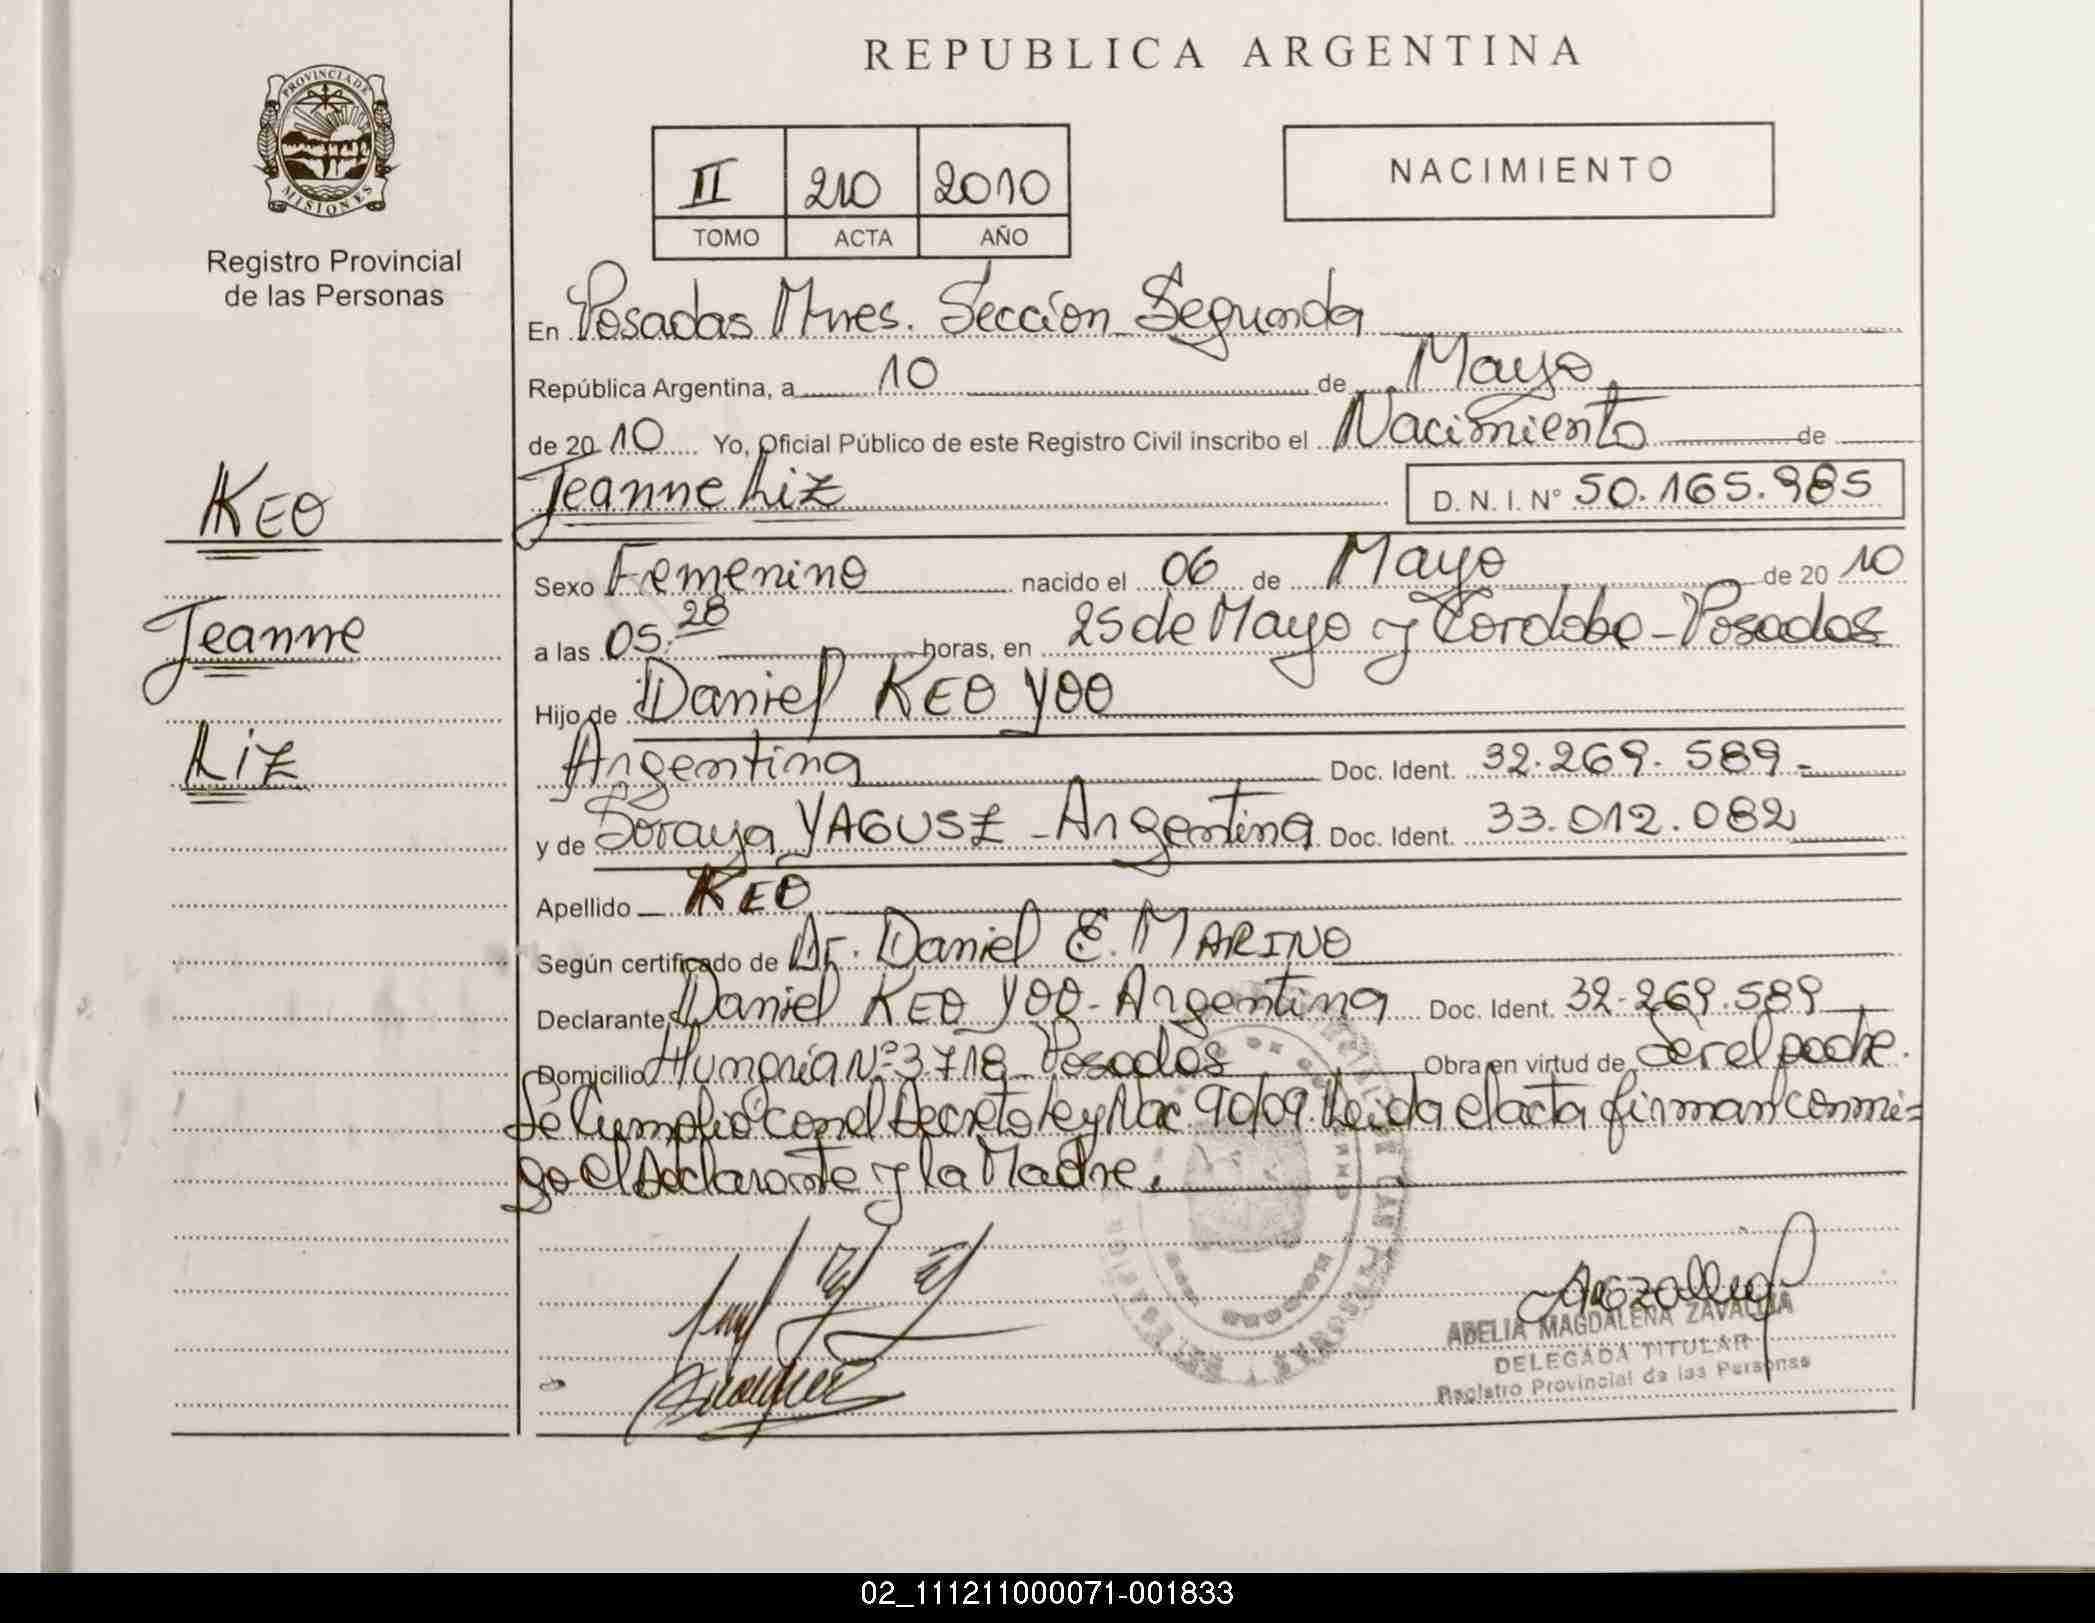 REPUBLICA ARGENTINA
PROVINCIA DE
MISIONES
Registro Provincial
de las Personas
II 210 2010
TOMO ACTA AÑO
NACIMIENTO
En Posadas Mnes. Sección Segunda
República Argentina, a 10 de Mayo
de 2010 Yo, Oficial Público de este Registro Civil inscribo el Nacimiento de
Jeanne Liz D. N. I. N° 50.165.985
KEO
Jeanne
Liz
Sexo Femenino nacido el 06 de Mayo de 2010
a las 05:28 horas, en 25 de Mayo y Cordoba - Posadas
Hijo de Daniel KEO YOO
Argentina Doc. Ident. 32.269.589-
y de Soraya YAGUSZ - Argentina Doc. Ident. 33.012.082
Apellido KEO
Según certificado de Dr. Daniel E. MARINO
Declarante Daniel KEO YOO - Argentina Doc. Ident. 32.269.589
Domicilio Hungría Nº 3.718 Posadas Obra en virtud de Ser el padre.
Se Cumplio con el Decreto Ley Nac 90/09. Leida el acta firman conmi=
go el Declarante y la Madre.
ABELIA MAGDALENA ZAVALLIA
DELEGADA TITULAR
Registro Provincial de las Personas
02_111211000071-001833